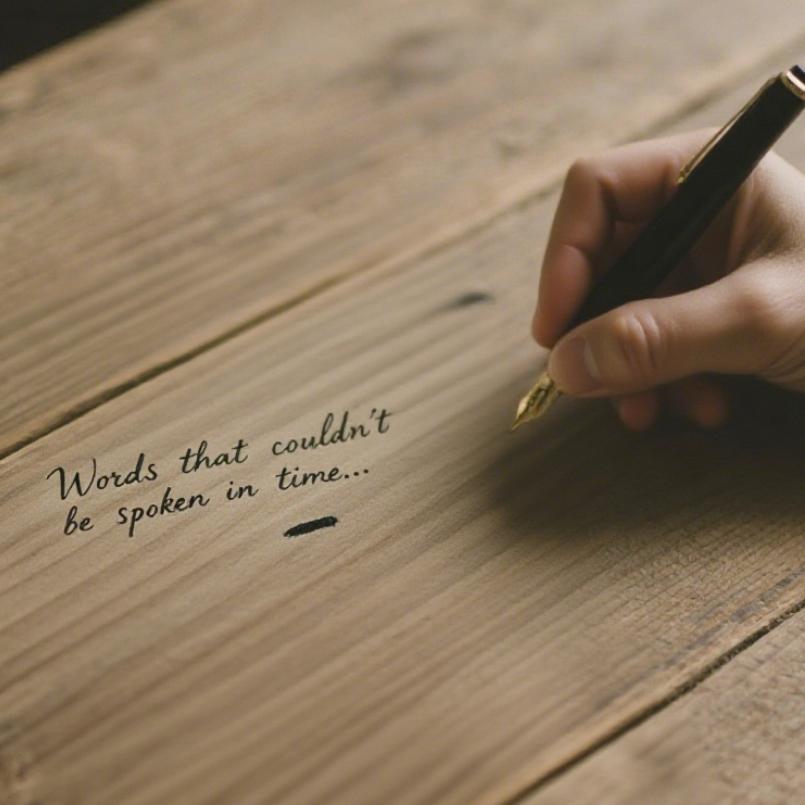 Words that couldn't
be spoken in time...